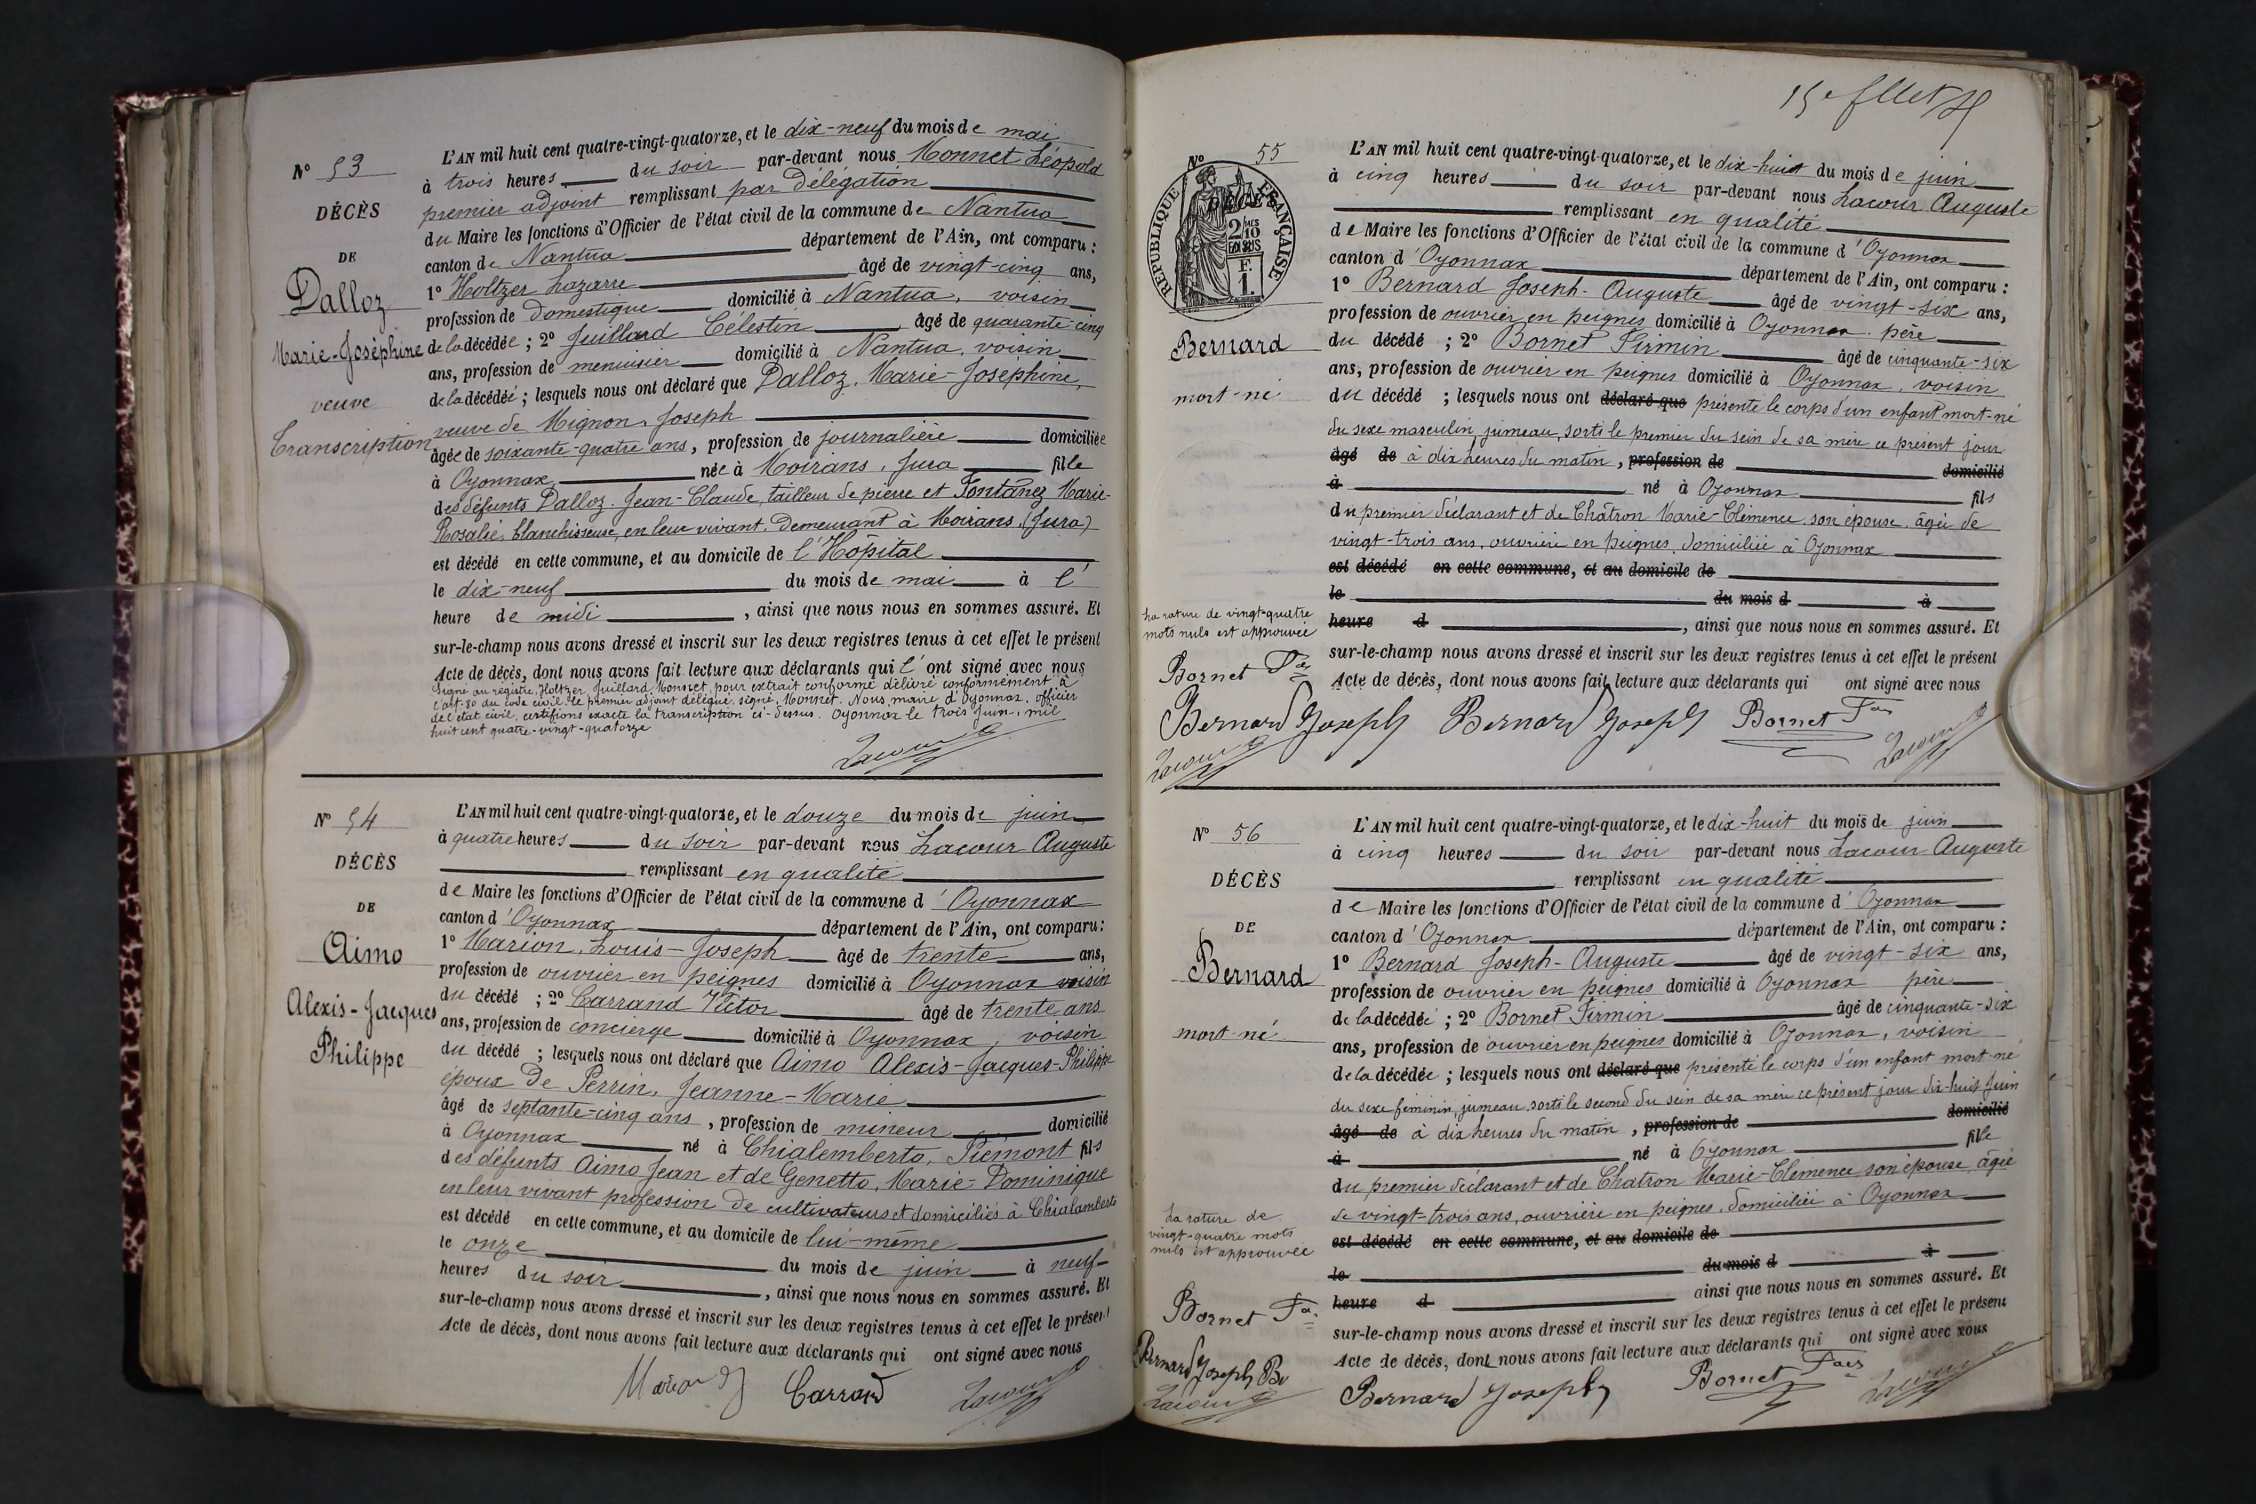 N° 53
DÉCÈS
DE
Dalloz
Marie-Joséphine
veuve
Transcription
L'AN mil huit cent quatre-vingt-quatorze, et le dix-neuf du mois de mai
à trois heures du soir par-devant nous Monnet Léopold
premier adjoint remplissant par délégation
du Maire les fonctions d'Officier de l'état civil de la commune de Nantua
canton de Nantua département de l'Ain, ont comparu :
1° Holtzer Lazarre âgé de vingt-cinq ans,
profession de domestique domicilié à Nantua, voisin
de la décédée ; 2° Juillard Célestin âgé de quarante cinq
ans, profession de menuisier domicilié à Nantua, voisin
de la décédée ; lesquels nous ont déclaré que Dalloz, Marie-Josephine,
veuve de Mignon, Joseph
âgée de soixante-quatre ans, profession de journalière domiciliée
à Oyonnax née à Moirans, Jura fille
des défunts Dalloz Jean-Claude, tailleur de pierre et Fontanez Marie-
Rosalie, blanchisseuse, en leur vivant, demeurant à Moirans, (Jura)
est décédé en cette commune, et au domicile de l'Hôpital
le dix-neuf du mois de mai à l'
heure de midi, ainsi que nous nous en sommes assuré. Et
sur-le-champ nous avons dressé et inscrit sur les deux registres tenus à cet effet le présent
Acte de décès, dont nous avons fait lecture aux déclarants qui l'ont signé avec nous
Signé au registre, Holtzer, Juillard, Monnet, pour extrait conforme délivré conformément à
l'art. 80 du code civil. Le premier adjoint délégué, signé, Monnet. Nous, maire d'Oyonnax, officier
de l'état civil, certifions exacte la transcription ci-dessus. Oyonnax le trois Juin, mil
huit cent quatre-vingt-quatorze
Lacour
N° 54
DÉCÈS
DE
Aimo
Alexis-Jacques
Philippe
L'AN mil huit cent quatre-vingt-quatorze, et le douze du mois de juin
à quatre heures du soir par-devant nous Lacour Auguste
remplissant en qualité
de Maire les fonctions d'Officier de l'état civil de la commune d'Oyonnax
canton d'Oyonnax département de l'Ain, ont comparu :
1° Marion, Louis-Joseph âgé de trente ans,
profession de ouvrier en peignes domicilié à Oyonnax voisin
du décédé ; 2° Carrand Victor âgé de trente ans
ans, profession de concierge domicilié à Oyonnax, voisin
du décédé ; lesquels nous ont déclaré que Aimo Alexis-Jacques-Philippe
époux de Perrin, Jeanne-Marie
âgé de septante-cinq ans, profession de mineur domicilié
à Oyonnax né à Chialemberto, Piémont fils
des défunts Aimo Jean et de Genetto, Marie-Dominique
en leur vivant profession de cultivateurs et domiciliés à Chialamberto
est décédé en cette commune, et au domicile de lui-même
le onze du mois de juin à neuf
heures du soir, ainsi que nous nous en sommes assuré. Et
sur-le-champ nous avons dressé et inscrit sur les deux registres tenus à cet effet le présent
Acte de décès, dont nous avons fait lecture aux déclarants qui ont signé avec nous
Marion Carrand Lacour
15e fllet
N° 55
DÉCÈS
RÉPUBLIQUE FRANÇAISE
2/10 EN SUS
F. 1.
Bernard
mort-né
L'AN mil huit cent quatre-vingt-quatorze, et le dix-huit du mois de juin
à cinq heures du soir par-devant nous Lacour Auguste
remplissant en qualité
de Maire les fonctions d'Officier de l'état civil de la commune d'Oyonnax
canton d'Oyonnax département de l'Ain, ont comparu :
1° Bernard Joseph-Auguste âgé de vingt-six ans,
profession de ouvrier en peignes domicilié à Oyonnax père
du décédé ; 2° Bornet Firmin âgé de cinquante-six
ans, profession de ouvrier en peignes domicilié à Oyonnax, voisin
du décédé ; lesquels nous ont déclaré que présenté le corps d'un enfant mort-né
du sexe masculin, jumeau, sorti le premier du sein de sa mère ce présent jour
âgé de à dix heures du matin, profession de domicilié
à né à Oyonnax fils
du premier déclarant et de Châtron Marie-Clémence son épouse, âgée de
vingt-trois ans, ouvrière en peignes, domiciliée à Oyonnax
est décédé en cette commune, et au domicile de
le du mois d à
heure d, ainsi que nous nous en sommes assuré. Et
sur-le-champ nous avons dressé et inscrit sur les deux registres tenus à cet effet le présent
Acte de décès, dont nous avons fait lecture aux déclarants qui ont signé avec nous
La rature de vingt-quatre
mots nuls est approuvée
Bornet Fois
Bernard Joseph Bernard Joseph Bornet Fois
Lacour Lacour
N° 56
DÉCÈS
DE
Bernard
mort-né
L'AN mil huit cent quatre-vingt-quatorze, et le dix-huit du mois de juin
à cinq heures du soir par-devant nous Lacour Auguste
remplissant en qualité
de Maire les fonctions d'Officier de l'état civil de la commune d'Oyonnax
canton d'Oyonnax département de l'Ain, ont comparu :
1° Bernard Joseph-Auguste âgé de vingt-six ans,
profession de ouvrier en peignes domicilié à Oyonnax père
de la décédée ; 2° Bornet Firmin âgé de cinquante-six
ans, profession de ouvrier en peignes domicilié à Oyonnax, voisin
de la décédée ; lesquels nous ont déclaré que présenté le corps d'un enfant mort-né
du sexe féminin, jumeau, sorti le second du sein de sa mère ce présent jour dix-huit juin
âgé de à dix heures du matin, profession de domicilié
à né à Oyonnax fille
du premier déclarant et de Chatron Marie-Clémence son épouse, âgée
de vingt-trois ans, ouvrière en peignes, domiciliée à Oyonnax
est décédé en cette commune, et au domicile de
le du mois d à
heure d ainsi que nous nous en sommes assuré. Et
sur-le-champ nous avons dressé et inscrit sur les deux registres tenus à cet effet le présent
Acte de décès, dont nous avons fait lecture aux déclarants qui ont signé avec nous
La rature de
vingt-quatre mots
nuls est approuvée
Bornet
Bernard Joseph Be
Lacour
Bernard Joseph Bornet Lacour